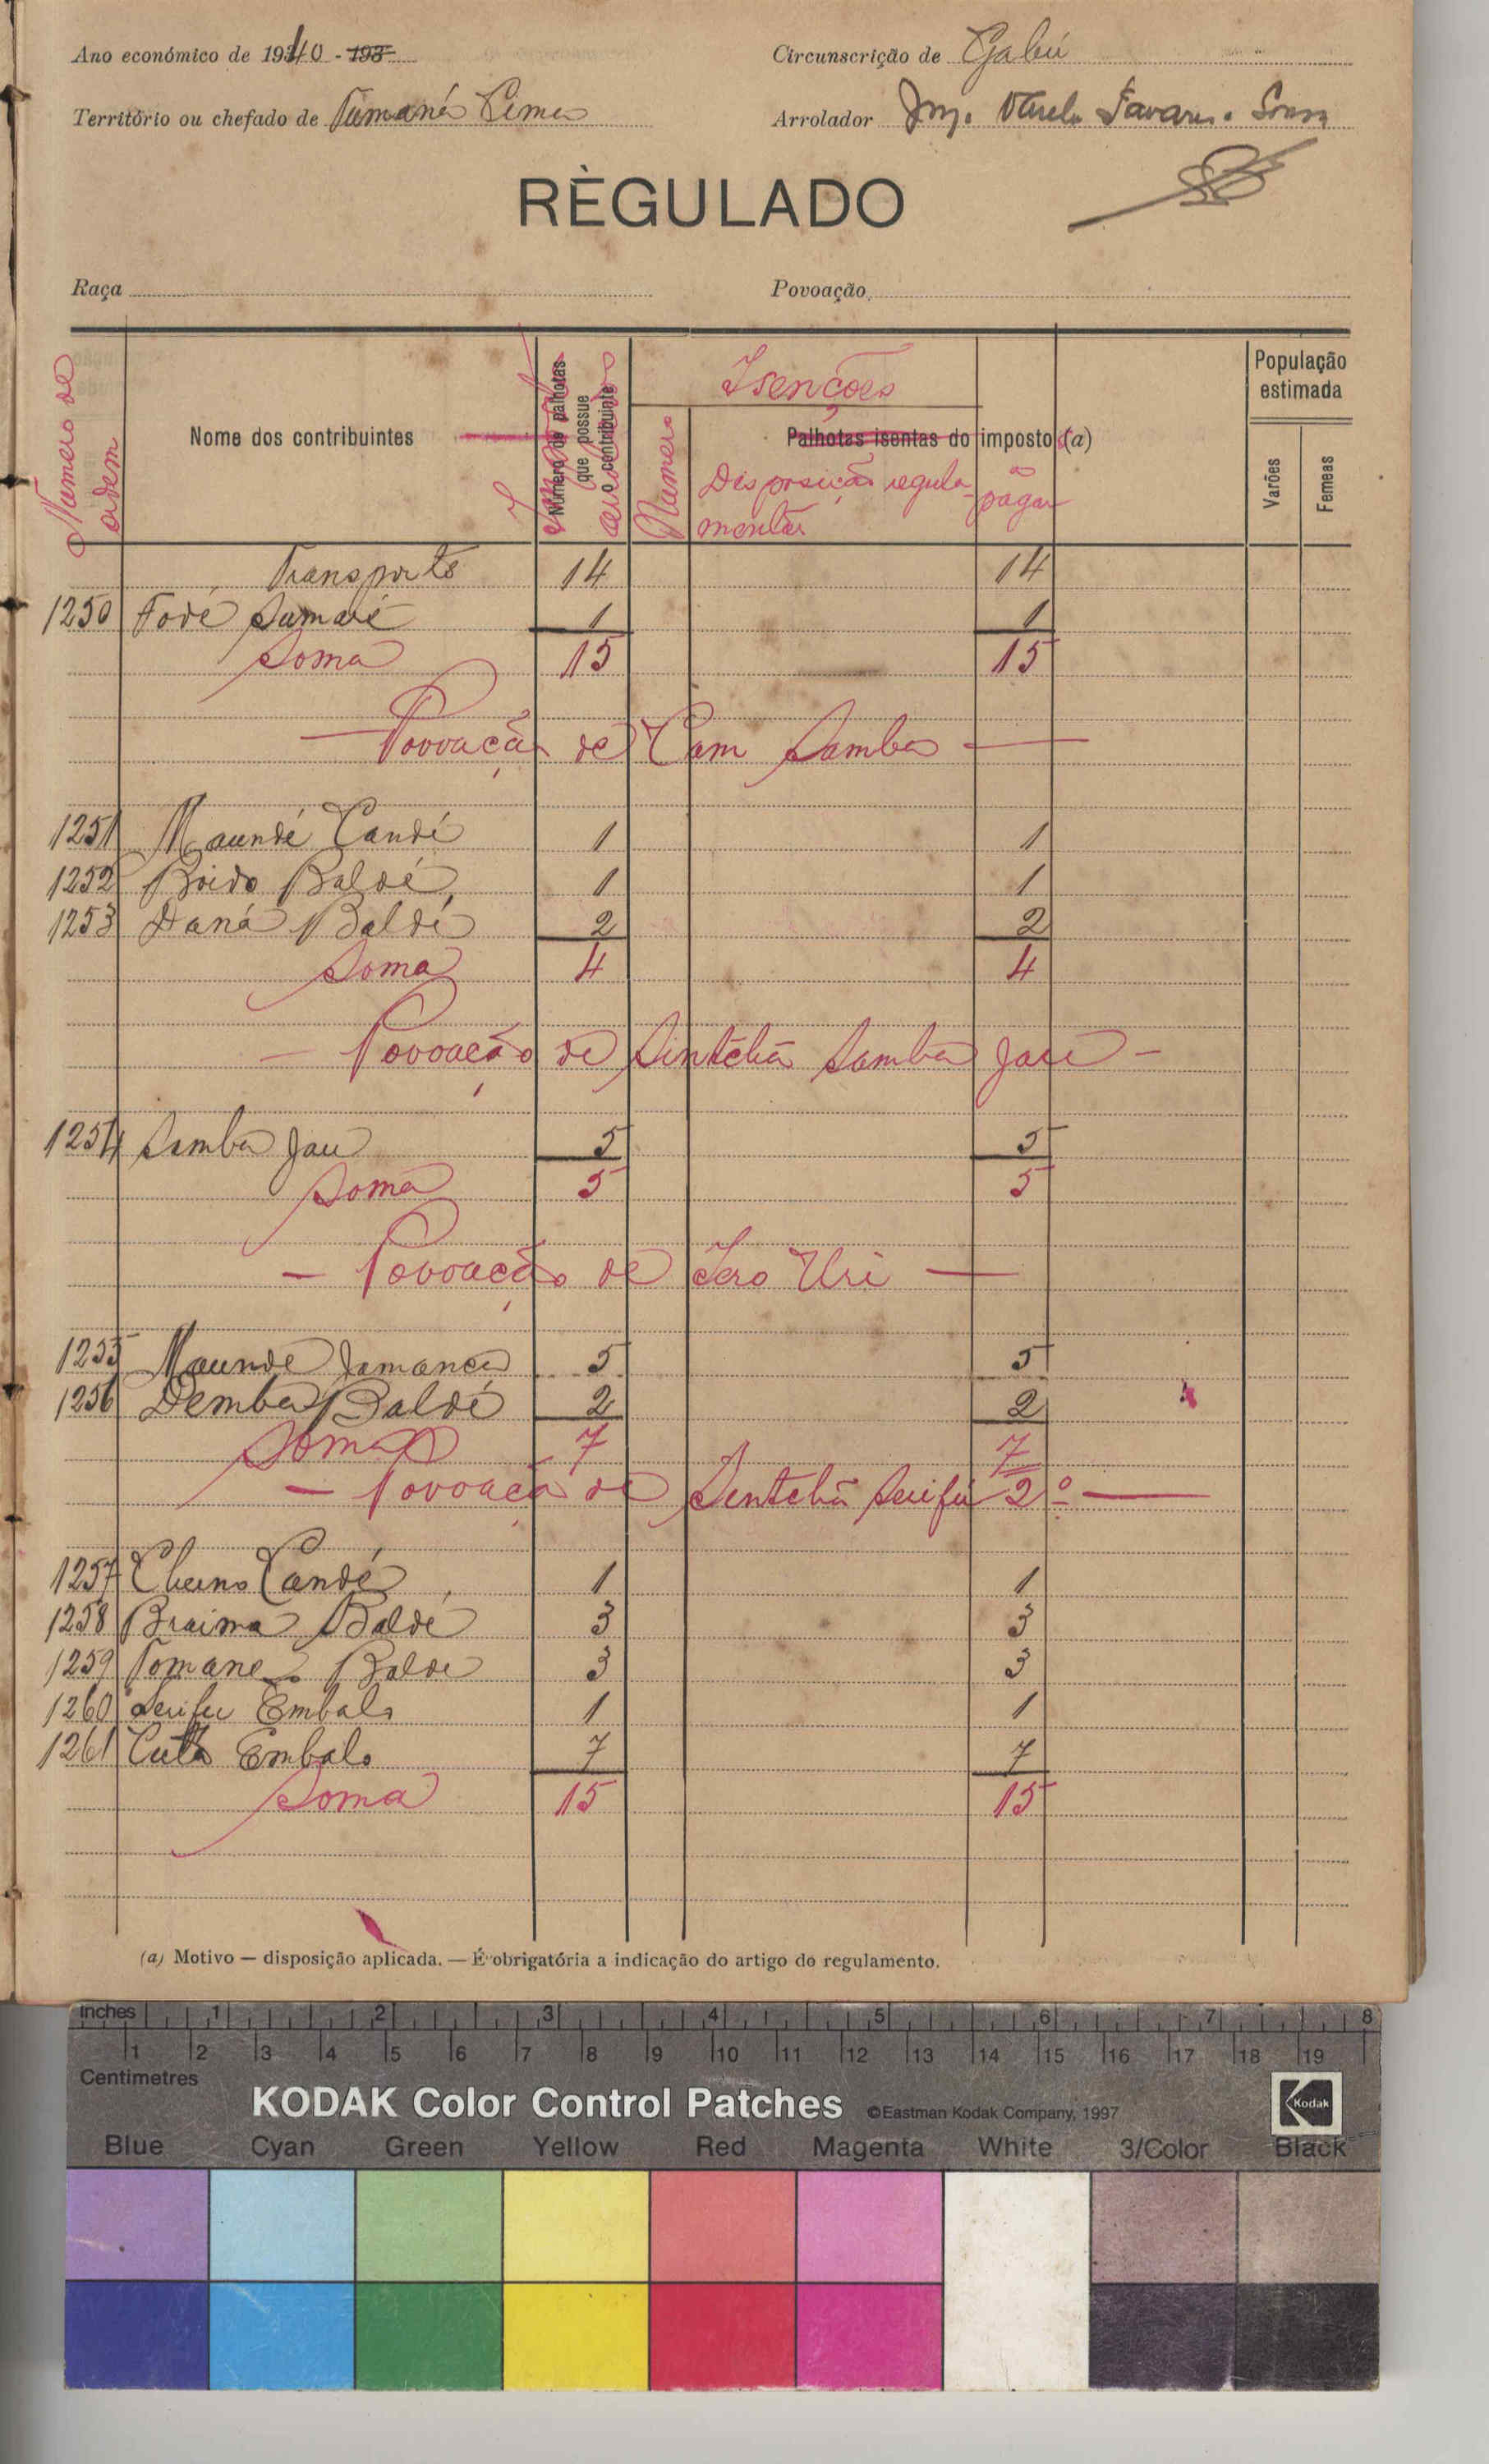 Ano económico de 1940 - 193
Circunscrição de Gabú
Território ou chefado de Tumaná Cima
Arrolador Tavares Sousa
RÈGULADO
Raça
Povoação
Numero de ordem
Nome dos contribuintes
Número de palhotas que possue o contribuinte
Isenções
Numero
Palhotas isentas do imposto (a)
Disposição regulamentar
a pagar
População estimada
Varões
Femeas
Transporte 14 14
1250 Fodé Sumaré 1 1
Soma 15 15
— Povoação de Cam Samba —
1251 Maundé Candé 1 1
1252 Boido Baldé 1 1
1253 Daná Baldé 2 2
Soma 4 4
— Povoação de Sintchã Samba Jau —
1254 Samba Jau 5 5
Soma 5 5
— Povoação de Iero Uri —
1255 Maunde Jamanca 5 5
1256 Demba Baldé 2 2
Soma 7 7
— Povoação de Sentchã Serifu 2º —
1257 Cherno Candé 1 1
1258 Braima Baldé 3 3
1259 Tomane Balde 3 3
1260 Serifu Embalo 1 1
1261 Cutô Embalo 7 7
Soma 15 15
(a) Motivo — disposição aplicada. — É obrigatória a indicação do artigo do regulamento.
Inches 1 2 3 4 5 6 7 8
1 2 3 4 5 6 7 8 9 10 11 12 13 14 15 16 17 18 19
Centimetres
KODAK Color Control Patches ©Eastman Kodak Company, 1997 Kodak
Blue Cyan Green Yellow Red Magenta White 3/Color Black